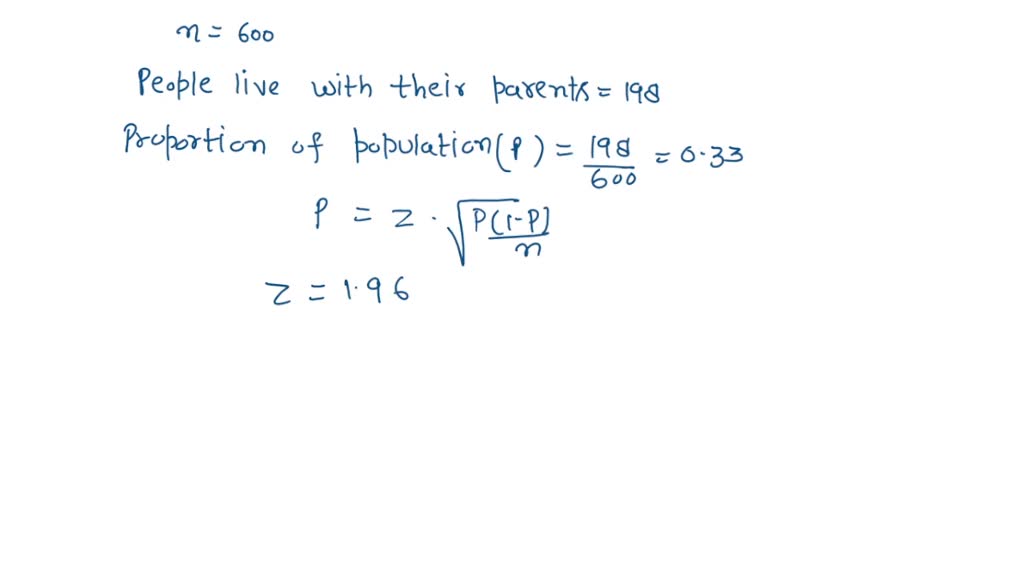 n = 600
People live with their parents = 198
Proportion of population (P) = 198/600 = 0.33
P = z · √(P(1-P)/n)
z = 1.96